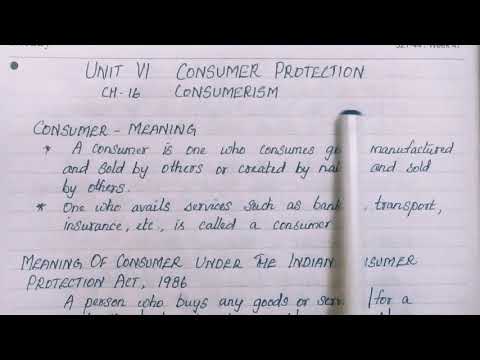 UNIT VI CONSUMER PROTECTION
CH-16 CONSUMERISM
CONSUMER - MEANING
* A consumer is one who consumes manufactured
and sold by others or created by and sold
by others.
* One who avails services such as transport,
insurance, etc., is called a consumer
MEANING OF CONSUMER UNDER THE INDIAN
PROTECTION ACT, 1986
A person who buys any goods or for a